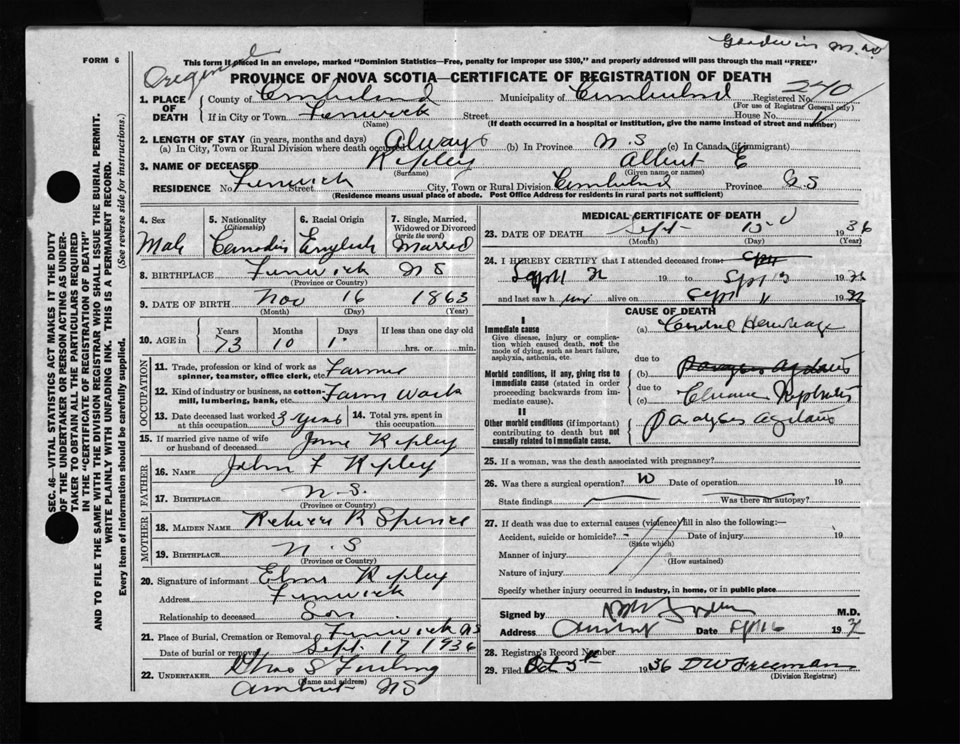 FORM 6
Original
Goodwin M.D
This form if placed in an envelope, marked "Dominion Statistics—Free, penalty for improper use $300," and properly addressed will pass through the mail "FREE"
PROVINCE OF NOVA SCOTIA—CERTIFICATE OF REGISTRATION OF DEATH
1. PLACE OF DEATH
County of Cumberland Municipality of Cumberland Registered No. 240
(For use of Registrar General only)
If in City or Town Fenwick Street House No.
(Name) (If death occurred in a hospital or institution, give the name instead of street and number)
2. LENGTH OF STAY (in years, months and days)
(a) In City, Town or Rural Division where death occurred Always (b) In Province N.S (c) In Canada (if immigrant)
3. NAME OF DECEASED Ripley Albert E
(Surname) (Given name or names)
RESIDENCE No. Fenwick Street City, Town or Rural Division Cumberland Province N.S
(Residence means usual place of abode. Post Office Address for residents in rural parts not sufficient)
4. Sex Male
5. Nationality (Citizenship) Canadian
6. Racial Origin English
7. Single, Married, Widowed or Divorced (write the word) Married
8. BIRTHPLACE Fenwick NS
(Province or Country)
9. DATE OF BIRTH Nov 16 1863
(Month) (Day) (Year)
10. AGE in Years Months Days If less than one day old
73 10 1 hrs. or min.
OCCUPATION
11. Trade, profession or kind of work as spinner, teamster, office clerk, etc. Farmer
12. Kind of industry or business, as cotton-mill, lumbering, bank, etc. Farm Work
13. Date deceased last worked at this occupation 3 years 14. Total yrs. spent in this occupation
15. If married give name of wife or husband of deceased Jane Ripley
FATHER
16. NAME John F Ripley
17. BIRTHPLACE N.S.
(Province or Country)
MOTHER
18. MAIDEN NAME Rebecca R Spence
19. BIRTHPLACE N.S
(Province or Country)
20. Signature of informant Ripley
Address Fenwick
Relationship to deceased Son
21. Place of Burial, Cremation or Removal Fenwick NS
Date of burial or removal Sept. 17 1936
22. UNDERTAKER Furlong
(Name and address)
Amherst NS
MEDICAL CERTIFICATE OF DEATH
23. DATE OF DEATH Sept 15 1936
(Month) (Day) (Year)
24. I HEREBY CERTIFY that I attended deceased from
19 to 19
and last saw h alive on Sept 19
CAUSE OF DEATH
I
Immediate cause
Give disease, injury or complication which caused death, not the mode of dying, such as heart failure, asphyxia, asthenia, etc.
(a) Cerebral Hemorrhage
due to
Morbid conditions, if any, giving rise to immediate cause (stated in order proceeding backwards from immediate cause).
(b)
due to
(c) Chronic Nephritis
II
Other morbid conditions (if important) contributing to death but not causally related to immediate cause.
Paralysis Agitans
25. If a woman, was the death associated with pregnancy?
26. Was there a surgical operation? No Date of operation 19
State findings Was there an autopsy?
27. If death was due to external causes (violence) fill in also the following:—
Accident, suicide or homicide? Date of injury 19
(State which)
Manner of injury
(How sustained)
Nature of injury
Specify whether injury occurred in industry, in home, or in public place
Signed by M.D.
Address Amherst Date Sept 16 193
28. Registrar's Record Number
29. Filed Oct 5th 1936 D W Freeman
(Division Registrar)
SEC. 46—VITAL STATISTICS ACT MAKES IT THE DUTY
OF THE UNDERTAKER OR PERSON ACTING AS UNDERTAKER TO OBTAIN ALL THE PARTICULARS REQUIRED
IN THE "CERTIFICATE OF REGISTRATION OF DEATH"
AND TO FILE THE SAME WITH THE DIVISION REGISTRAR WHO SHALL ISSUE THE BURIAL PERMIT.
WRITE PLAINLY WITH UNFADING INK. THIS IS A PERMANENT RECORD.
Every item of information should be carefully supplied. (See reverse side for instructions.)